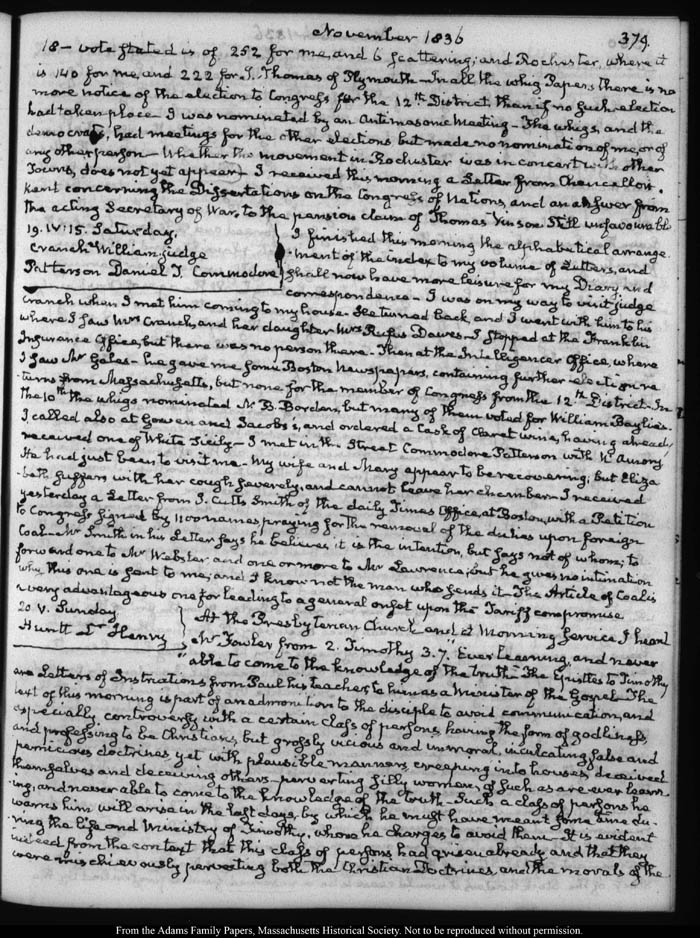 November 1836
379.
18 — vote stated is of 252 for me, and 6 scattering; and Rochester, where it
is 140 for me, and 222 for J. Thomas of Plymouth — In all the whig Papers there is no
more notice of the election to Congress for the 12th District, than if no such election
had taken place — I was nominated by an Antimasonic Meeting — The whigs, and the
democrats, had meetings for the other elections but made no nomination of me, or of
any other person — Whether the movement in Rochester was in concert with other
Towns, does not yet appear — I received this morning a Letter from Chancellor
Kent concerning the Dissertations on the Congress of Nations, and an answer from
the acting Secretary of War, to the pension claim of Thomas Vinson still unfavourable
19. IV:15. Saturday.
Cranch William Judge
Patterson Daniel T. Commodore
I finished this morning the alphabetical arrange-
ment of the index to my volume of Letters, and
shall now have more leisure for my Diary and
correspondence — I was on my way to visit Judge
Cranch when I met him coming to my house. He turned back, and I went with him to his
where I saw Mrs Cranch, and her daughter Mrs Rufus Dawes — I stopped at the Franklin
Insurance Office, but there was no person there — Then at the Intelligencer Office, where
I saw Mr Gales — he gave me some Boston Newspapers, containing further election re-
turns from Massachusetts, but none for the member of Congress from the 12th District — In
the 10th the whigs nominated N. B. Borden, but many of them voted for William Baylies.
I called also at Gowen and Jacobs's, and ordered a Cask of Claret wine, having already
received one of White Sicily — I met in the Street Commodore Patterson with Mr Amory
He had just been to visit me — My wife and Mary appear to be recovering; but Eliza-
beth suffers with her cough severely, and cannot leave her chamber — I received
yesterday a Letter from J. Cutts Smith of the daily Times Office, at Boston, with a Petition
to Congress signed by 1100 names praying for the removal of the duties upon foreign
Coal — Mr Smith in his Letter says he believes it is the intention, but says not of whom; to
forward one to Mr Webster and one or more to Mr Lawrence; but he gives no intimation
why this one is sent to me; and I know not the man who sends it. The Article of Coal is
a very advantageous one for leading to a general onset upon the Tariff compromise
20. V. Sunday
Huntt Dr Henry
At the Presbyterian Church and at Morning service I heard
Mr Fowler from 2. Timothy 3.7. "Ever learning, and never
able to come to the knowledge of the truth." The Epistles to Timothy
are Letters of Instructions from Paul his teacher, to him as a Minister of the Gospel — The
text of this morning is part of an admonition to the disciple to avoid communication, and
especially, controversy with a certain class of persons, having the form of godliness,
and professing to be Christians, but grossly vicious and immoral, inculcating false and
pernicious doctrines, yet with plausible manners, creeping into houses, deceived
themselves and deceiving others — perverting silly women, of such as are ever learn-
ing, and never able to come to the knowledge of the truth. Such a class of persons he
warns him will arise in the last days, by which he must have meant some time du-
ring the life and Ministry of Timothy, whom he charges to avoid them — It is evident
indeed from the context that this class of persons had arisen already and that they
were mischievously perverting both the Christian Doctrines, and the morals of the
From the Adams Family Papers, Massachusetts Historical Society. Not to be reproduced without permission.